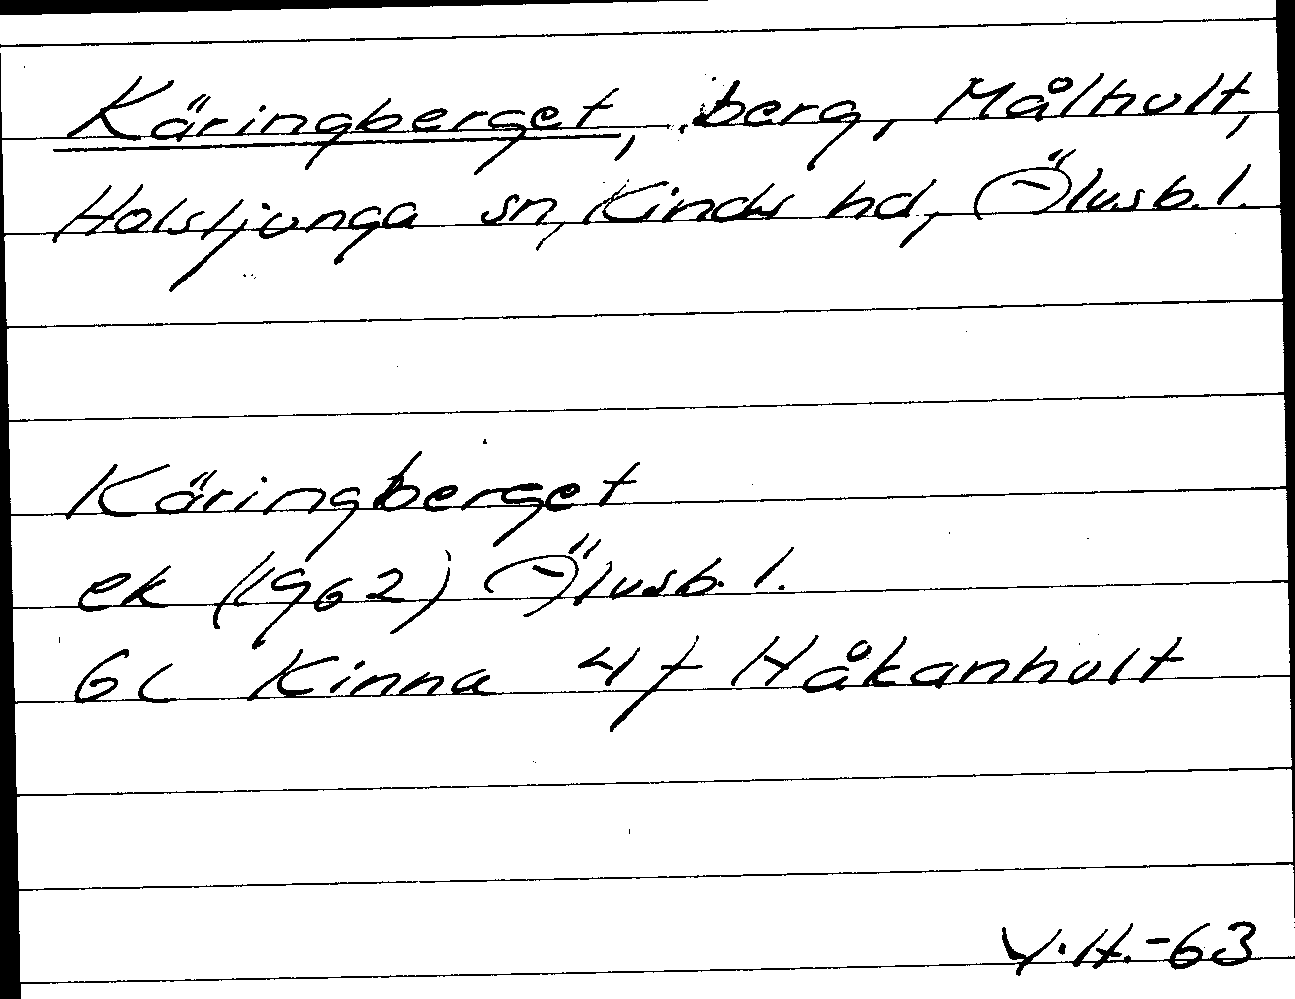 Käringberget, berg, Målhult,
Holsljunga sn, Kinds hd, Älvsb.l.
Käringberget
ek (1962) Älvsb.l.
6C Kinna 4f Håkanhult
Y.H.-63